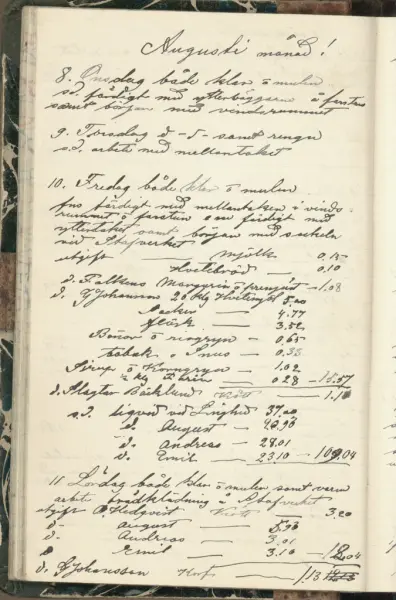 Augusti månad!
8. Onsdag både klar o mulen
s.d. färdigt med ytterväggarna å farstun
samt början med vindsrummet
9. Torsdag d -s- samt regn
s.d. arbete med mellantaket
10. Fredag både klar o mulen
färdigt med mellantaken i vinds-
rummet o farstun o färdigt med
yttertaket samt början med
vid Stafverket
utgift Mjölk 0,15
Hvetebröd — 0,10
d. Falkens Margarin o — 1,08
d. G Johansson 20 kg Hvetemjöl 5,00
Socker — 4.77
fläsk — 3,52
Bönor o risgryn — 0,65
tobak o Snus — 0,35
Sirap o Korngryn — 1,02
½ kg 028 — 15.57
d. Slagtar Bäcklund Kött 1,10
s.d. Sigvid vid 37,00
d. August —
d. Andreas — 28.01
d. Emil — 23.10 —
11 Lördag både klar o mulen samt varm
arbete brädklädning å Stafverket
utgift Hedqvist — 3.20
d- August —
d Andreas — 3.01
d Emil — 3.10 —
d. G Johansson Korf